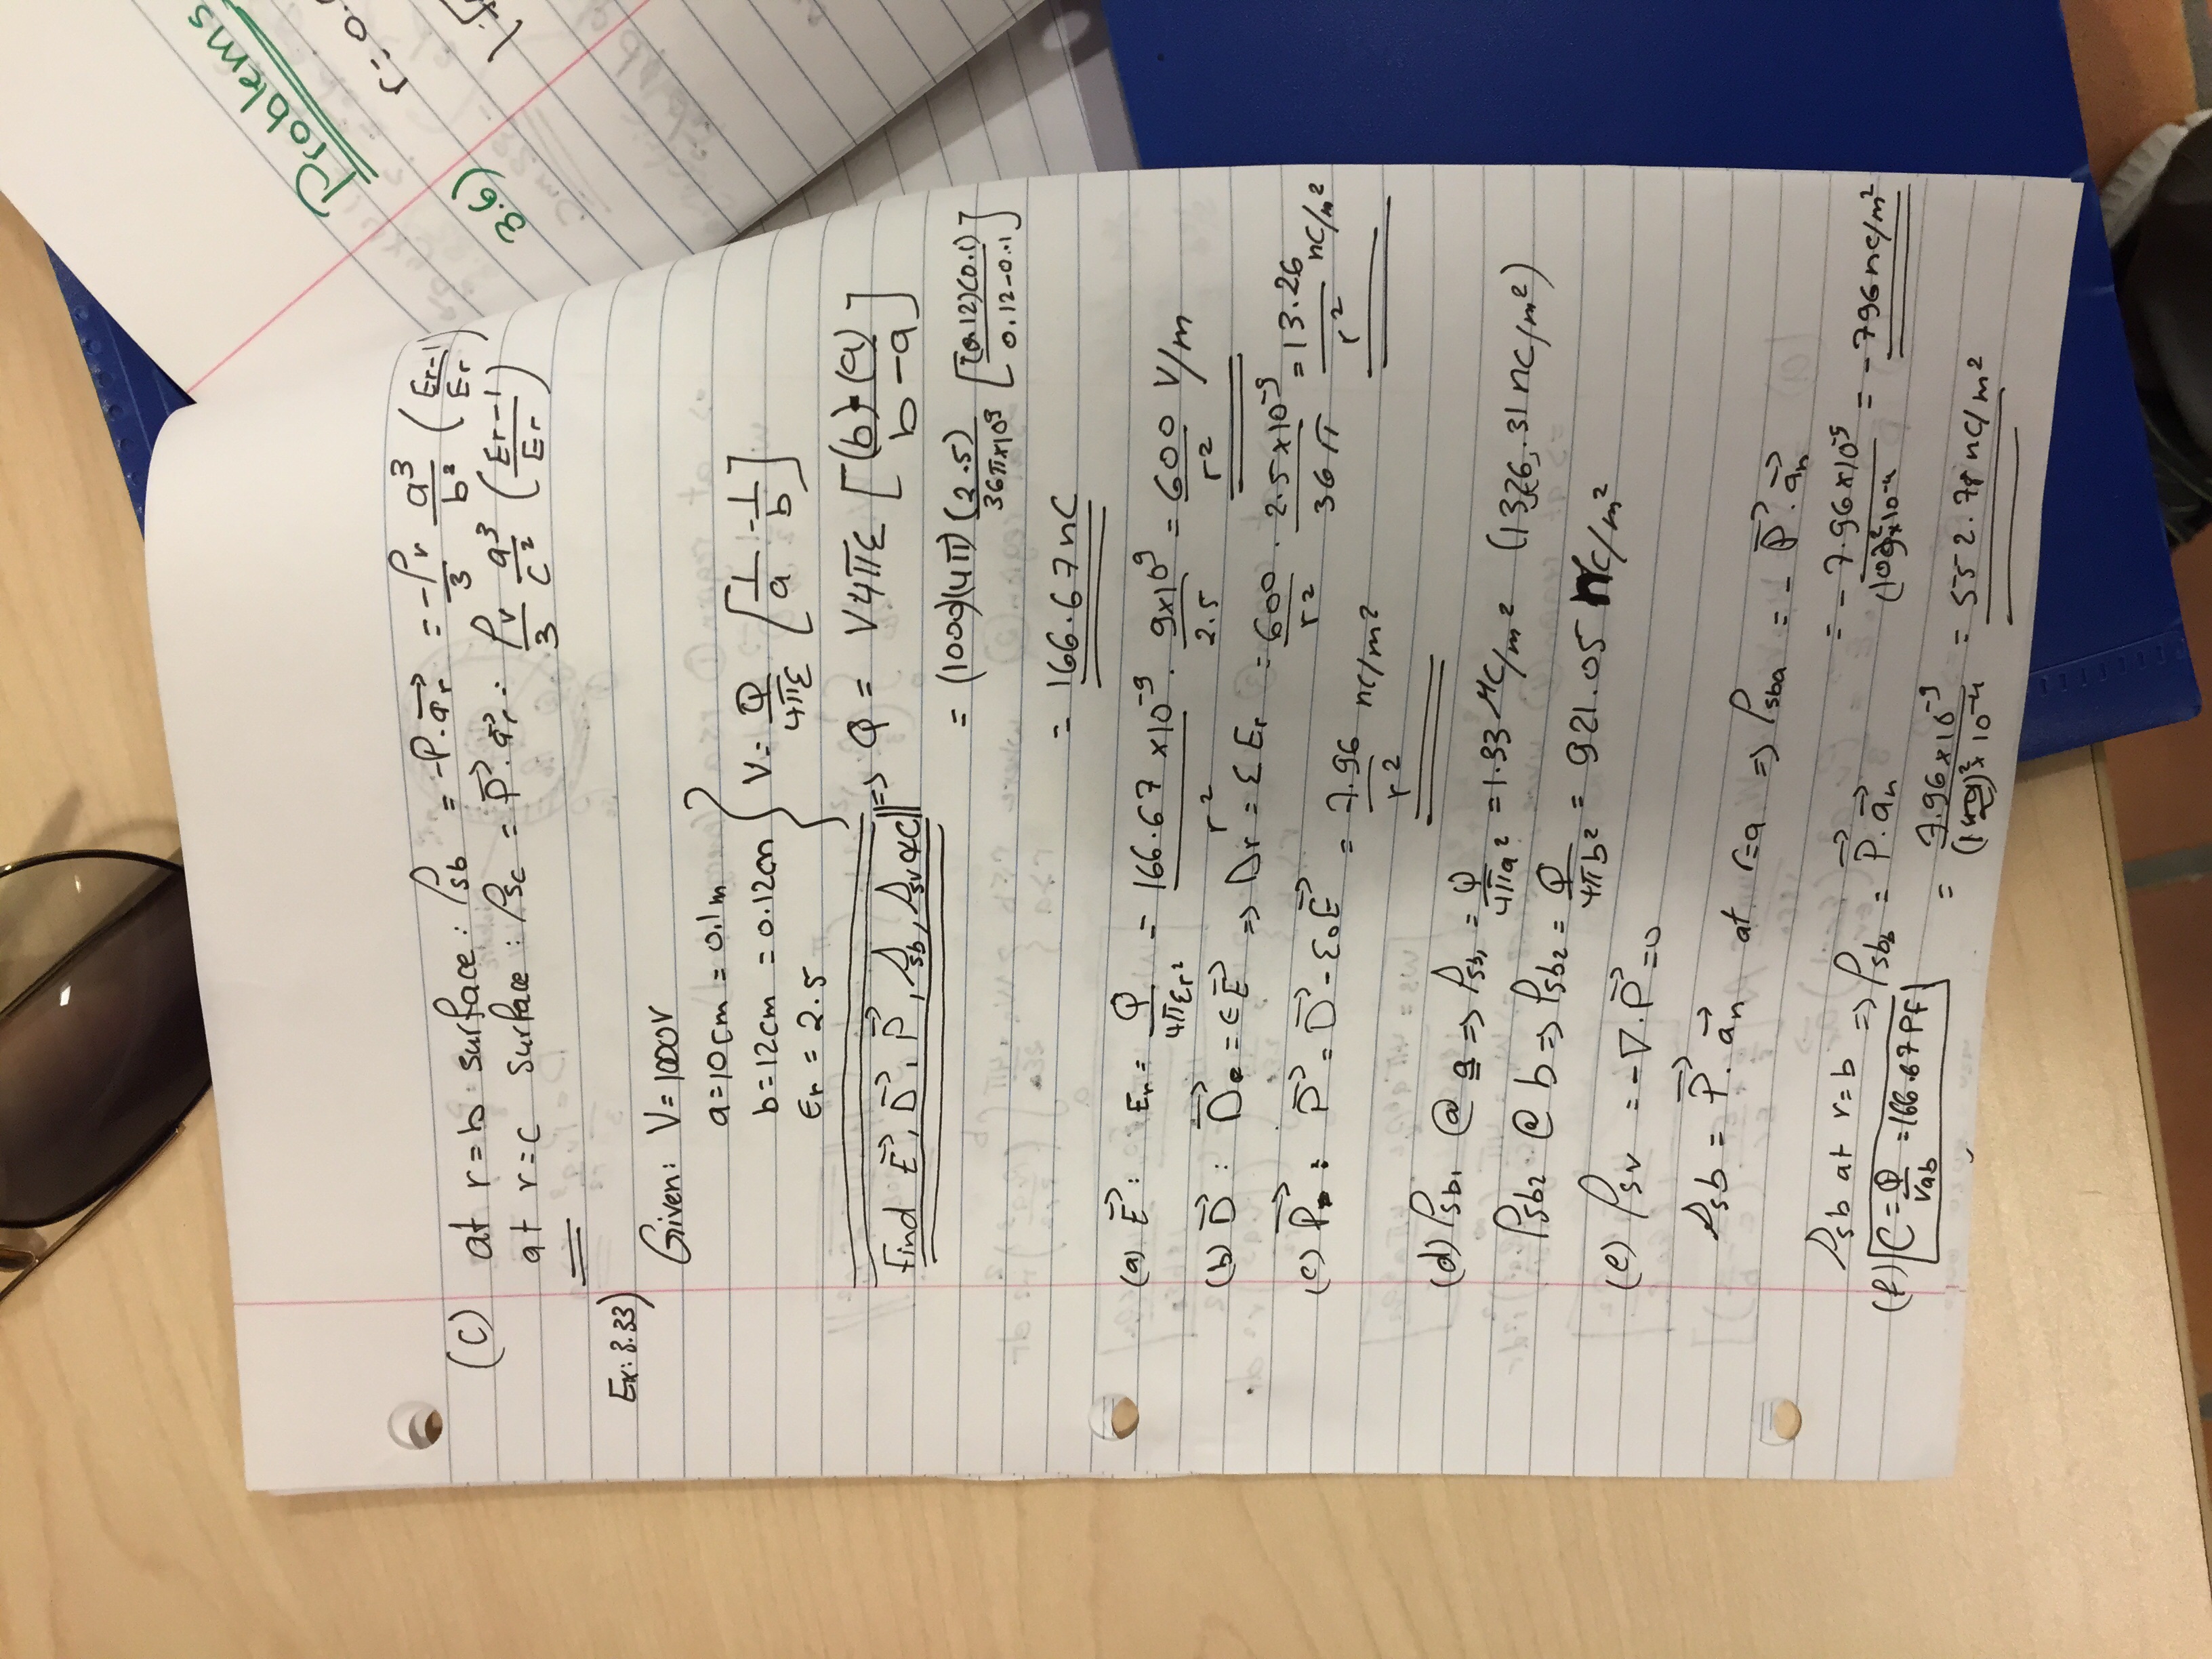 Problems
3.6)
r=0.
(c) at r=b surface: ρsb = -P⃗.a⃗r = -ρv/3 a³/b² (εr-1/εr)
at r=c surface: ρsc = P⃗.a⃗r: ρv/3 a³/c² (εr-1/εr)
Ex:3.33)
Given: V=1000V
a=10cm=0.1m
b=12cm=0.12cm
εr=2.5
} V = Q/4πε [1/a - 1/b]
Find E⃗, D⃗, P⃗, ρsb, ρsv & C => Q = V4πε [(b)(a)/b-a]
= (1000)(4π)(2.5)/36π×10⁹ [(0.12)(0.1)/0.12-0.1]
= 166.67nC
(a) E⃗: Er = Q/4πεr² = 166.67×10⁻⁹/r² . 9×10⁹/2.5 = 600/r² V/m
(b) D⃗: D⃗e = εE⃗ => Dr = εEr = 600/r² . 2.5×10⁻⁹/36π = 13.26/r² nC/m²
(c) P⃗: P⃗ = D⃗ - ε₀E⃗ = 7.96/r² nC/m²
(d) ρsb₁ @ a => ρsb₁ = Q/4πa² = 1.33 μC/m² (1326.31 nC/m²)
ρsb₂ @ b => ρsb₂ = Q/4πb² = 921.05 nC/m²
(e) ρsv = -∇.P⃗ = 0
ρsb = P⃗.a⃗n at r=a => ρsba = -P⃗.a⃗n
= -7.96×10⁻⁹/(10)²×10⁻⁴ = -796nC/m²
ρsb at r=b => ρsbb = P⃗.a⃗n
= 7.96×10⁻⁹/(12)²×10⁻⁴ = 552.78nC/m²
(f) C = Q/Vab = 166.67Pf